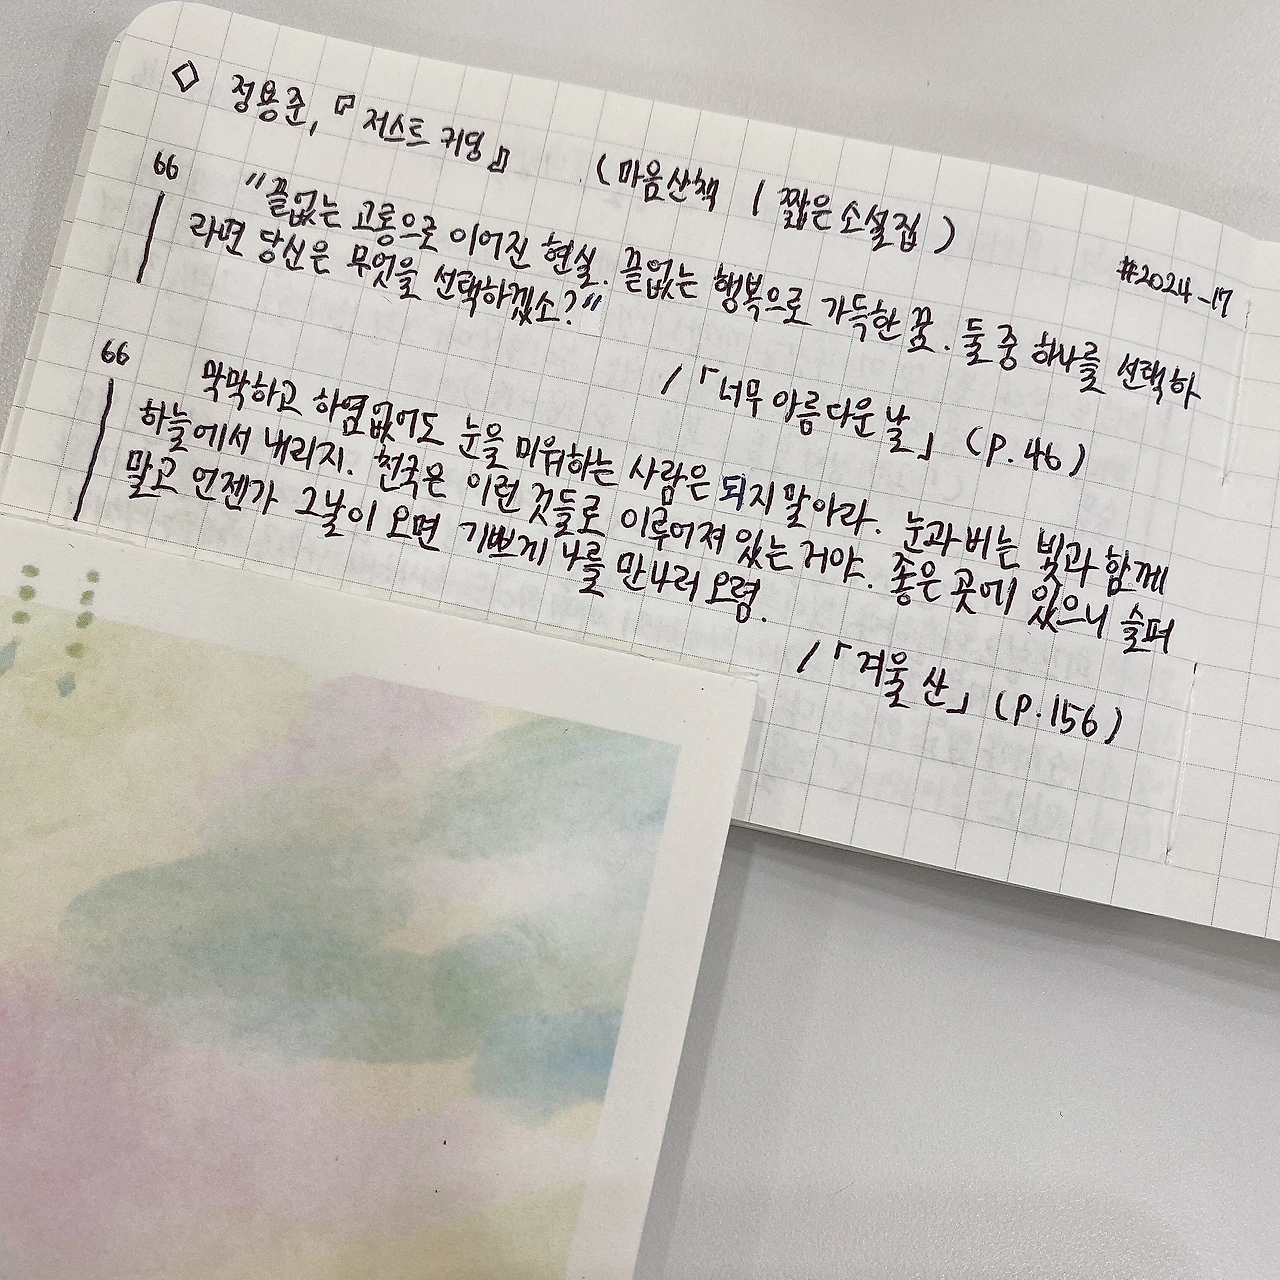 ◇ 정용준, 『저스트 키딩』 (마음산책 / 짧은 소설집)
#2024-17
“ "끝없는 고통으로 이어진 현실. 끝없는 행복으로 가득한 꿈. 둘 중 하나를 선택하
라면 당신은 무엇을 선택하겠소?"
/「너무 아름다운 날」 (p.46)
“ 막막하고 하염없어도 눈을 미워하는 사람은 되지 말아라. 눈과 비는 빛과 함께
하늘에서 내리지. 천국은 이런 것들로 이루어져 있는 거야. 좋은 곳에 있으니 슬퍼
말고 언젠가 그날이 오면 기쁘게 나를 만나러 오렴.
/「겨울 산」 (p.156)